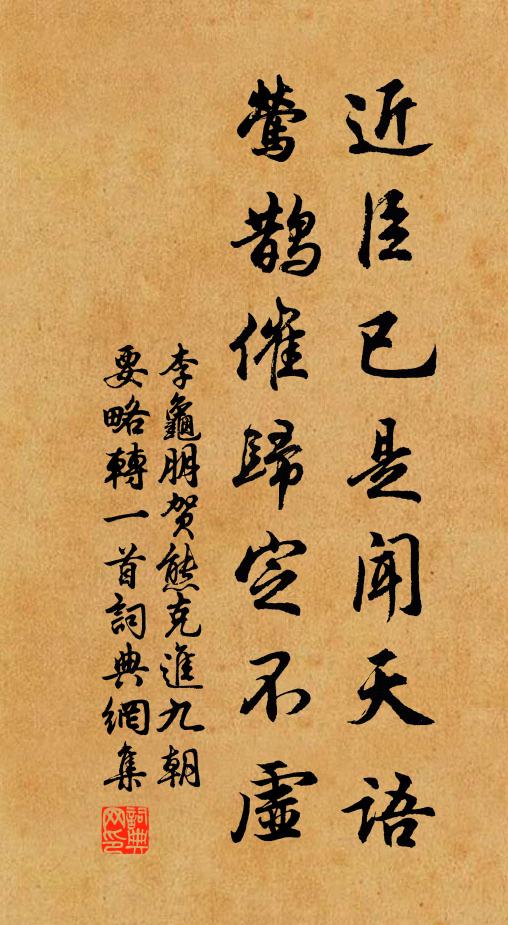 近臣已是闻天语
莺鹊催歸定不虚
李龜朋贺熊克進九朝
要略轉一首詞典網集
詞典网印